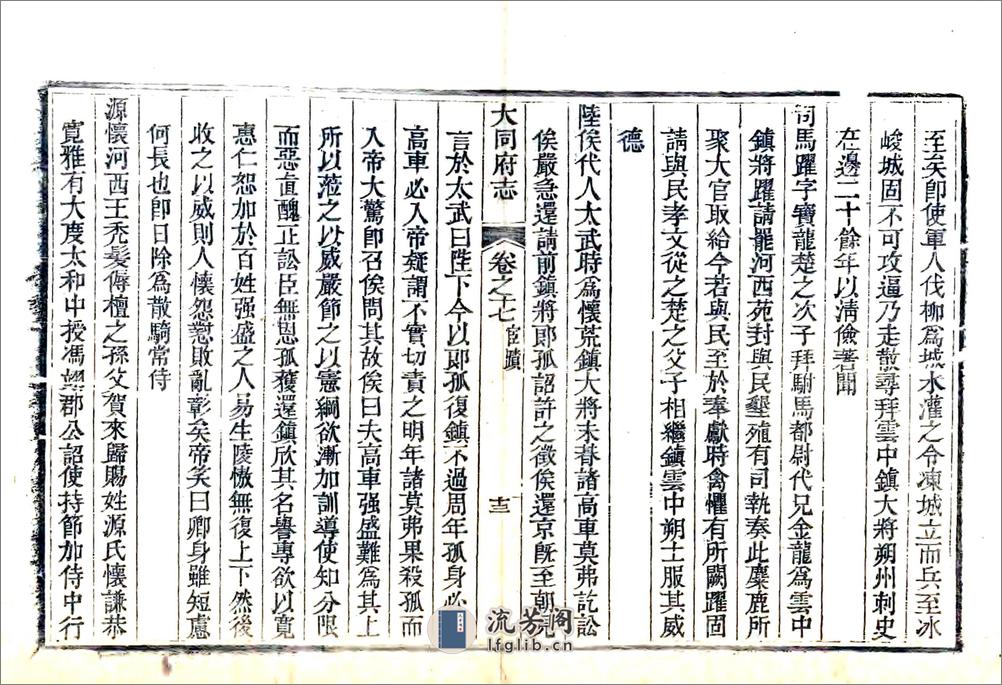 至矣卽使軍人伐柳爲城水灌之令凍城立而兵至冰
峻城固不可攻逼乃走散尋拜雲中鎮大將朔州刺史
在邊二十餘年以淸儉著聞
司馬躍字寶龍楚之次子拜駙馬都尉代兄金龍爲雲中
鎮將躍請罷河西苑封與民墾殖有司執奏此麋鹿所
聚大官取給今若與民至於奉獻時禽懼有所闕躍固
請與民孝文從之楚之父子相繼鎮雲中朔土服其威
德
陸俟代人太武時爲懷荒鎮大將未朞諸高車莫弗訖訟
俟嚴急還請前鎮將郞孤詔許之徵俟還京旣至朝見
大同府志
卷之十七
宦蹟
十三
言於太武曰陛下今以郞孤復鎮不過周年孤身必
高車必入帝疑謂不實切責之明年諸莫弗果殺孤而
入帝大驚卽召俟問其故俟曰夫高車强盛難爲其上
所以莅之以威嚴節之以憲綱欲漸加訓導使知分限
而惡直醜正訟臣無恩孤獲還鎮欣其名譽專欲以寬
惠仁恕加於百姓强盛之人易生陵慠無復上下然後
收之以威則人懷怨懟敗亂彰矣帝笑曰卿身雖短慮
何長也卽日除爲散騎常侍
源懷河西王禿髮傉檀之孫父賀來歸賜姓源氏懷謙恭
寬雅有大度太和中授馮翊郡公詔使持節加侍中行
流芳阁
lfglib.cn